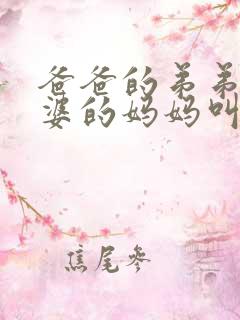 爸爸的弟弟
婆的妈妈叫
焦尾参